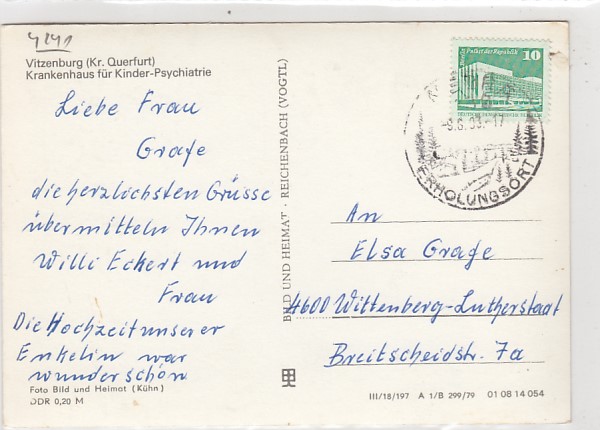 4241
Vitzenburg (Kr. Querfurt)
Krankenhaus für Kinder-Psychiatrie
Liebe Frau
Grafe
die herzlichsten Grüsse
übermitteln Ihnen
Willi Eckert und
Frau
Die Hochzeit unserer
Enkelin war
wunderschön
Foto Bild und Heimat (Kühn)
DDR 0,20 M
BILD UND HEIMAT · REICHENBACH (VOGTL)
Palast der Republik
10
-9.6.83.-17
ERHOLUNGSORT
An
Elsa Grafe
4600 Wittenberg-Lutherstadt
Breitscheidstr. 7a
III/18/197 A 1/B 299/79 01 08 14 054